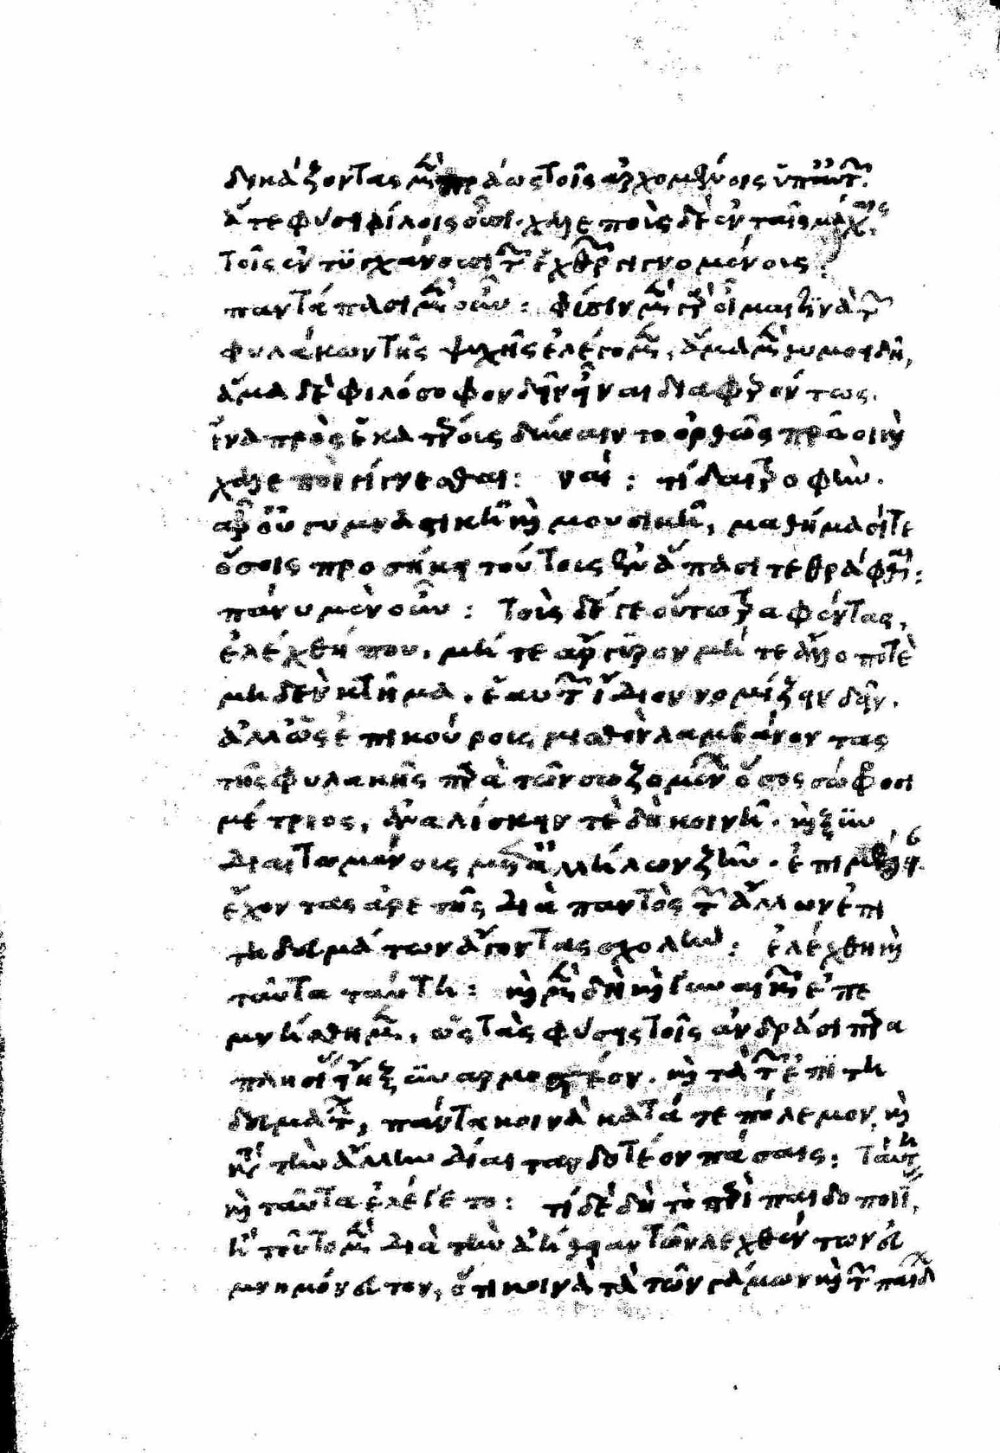 δικάζοντας μὲν πράως τοῖς ἀρχομένοις ὑπ' αὐτῶν·
ἅτε φύσει φίλοις οὖσι· χαλεποὺς δὲ ἐν ταῖς μάχαις
τοῖς ἐντυγχάνουσι τῶν ἐχθρῶν γιγνομένοις:
παντάπασι μὲν οὖν: φύσιν μὲν γὰρ οἶμαι τινὰ τῶν
φυλάκων τῆς ψυχῆς ἐλέγομεν, ἅμα μὲν θυμοειδῆ,
ἅμα δὲ φιλόσοφον δεῖν εἶναι διαφερόντως.
ἵνα πρὸς ἑκατέρους δύναιντο ὀρθῶς πρᾶοι καὶ
χαλεποὶ γίγνεσθαι: ναί: τί δαὶ τροφήν.
ἆρ' οὐ γυμναστικῇ καὶ μουσικῇ, μαθήμασί τε
ὅσοις προσήκει τούτοις ἐν ἅπασι τεθράφθαι:
πάνυ μὲν οὖν: τοὺς δέ γε οὕτω τραφέντας,
ἐλέχθη που, μήτε αὖ χρυσὸν μήτε ἄργυρον μήτε ἄλλο ποτὲ
μηδὲν κτῆμα, ἑαυτῶν ἴδιον νομίζειν δεῖν.
ἀλλ' ὡς ἐπικούρους μισθὸν λαμβάνοντας
τῆς φυλακῆς παρὰ τῶν σωζομένων ὅσος σώφροσι
μέτριος, ἀναλίσκειν τε δὴ κοινῇ· καὶ ξυν
διαιτωμένους μετὰ ἀλλήλων ζῆν· ἐπιμέλειαν
ἔχοντας ἀρετῆς διὰ παντὸς τῶν ἄλλων ἐπι
τηδευμάτων ἄγοντας σχολήν: ἐλέχθη καὶ
ταῦτα ταύτῃ: καὶ μὲν δὴ καὶ γυναικῶν ἐπε
μνήσθημεν, ὡς τὰς φύσεις τοῖς ἀνδράσι παρα
πλησίας εἴη ξυναρμοστέον· καὶ τὰ τῶν ἐπιτη
δευμάτων, πάντα κοινὰ κατά τε πόλεμον, καὶ
κατὰ τὴν ἄλλην δίαιταν δοτέον πάσαις: ταύτῃ
καὶ ταῦτα ἐλέγετο: τί δὲ δὴ τὸ περὶ παιδοποιΐας,
ἢ τοῦτο μὲν διὰ τὴν ἀήθειαν τῶν λεχθέντων εὐ
μνημόνευτον, ὅτι κοινὰ τὰ τῶν γάμων καὶ τῶν παίδων